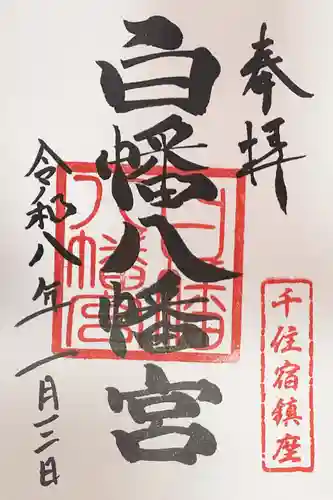 奉拝
千住宿鎮座
白幡八幡宮
白幡八幡宮
令和八年一月三日